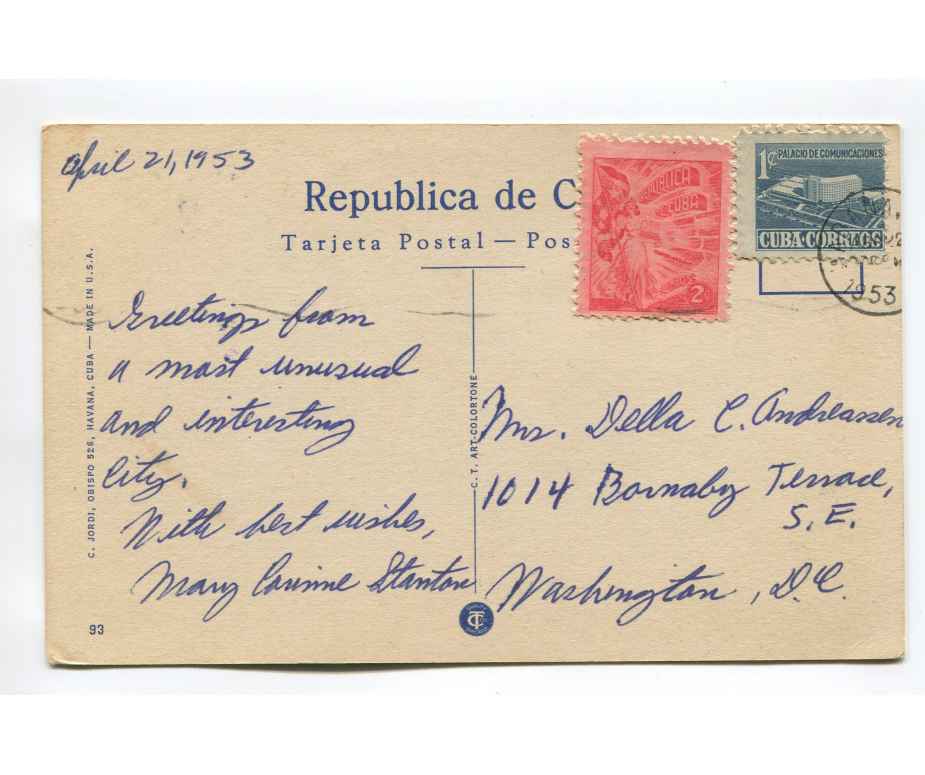 April 21, 1953
Republica de C
Tarjeta Postal — Pos
REPUBLICA
CUBA
2
1¢ PALACIO DE COMUNICACIONES
CUBA·CORREOS
1953
C. JORDI, OBISPO 526, HAVANA, CUBA — MADE IN U.S.A.
Greetings from
a most unusual
and interesting
City.
With best wishes,
Mary Corinne Stanton
C. T. ART-COLORTONE
Mrs. Della C. Andreassen
1014 Barnaby Terrace,
S.E.
Washington, D.C.
93